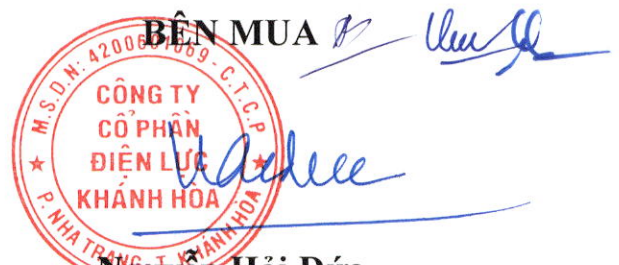 BÊN MUA
M.S.D.N: 4200601069 - C.T.C.P
CÔNG TY
CỔ PHẦN
ĐIỆN LỰC
KHÁNH HÒA
P. NHA TRANG - T. KHÁNH HÒA
Nguyễn Hải Đức